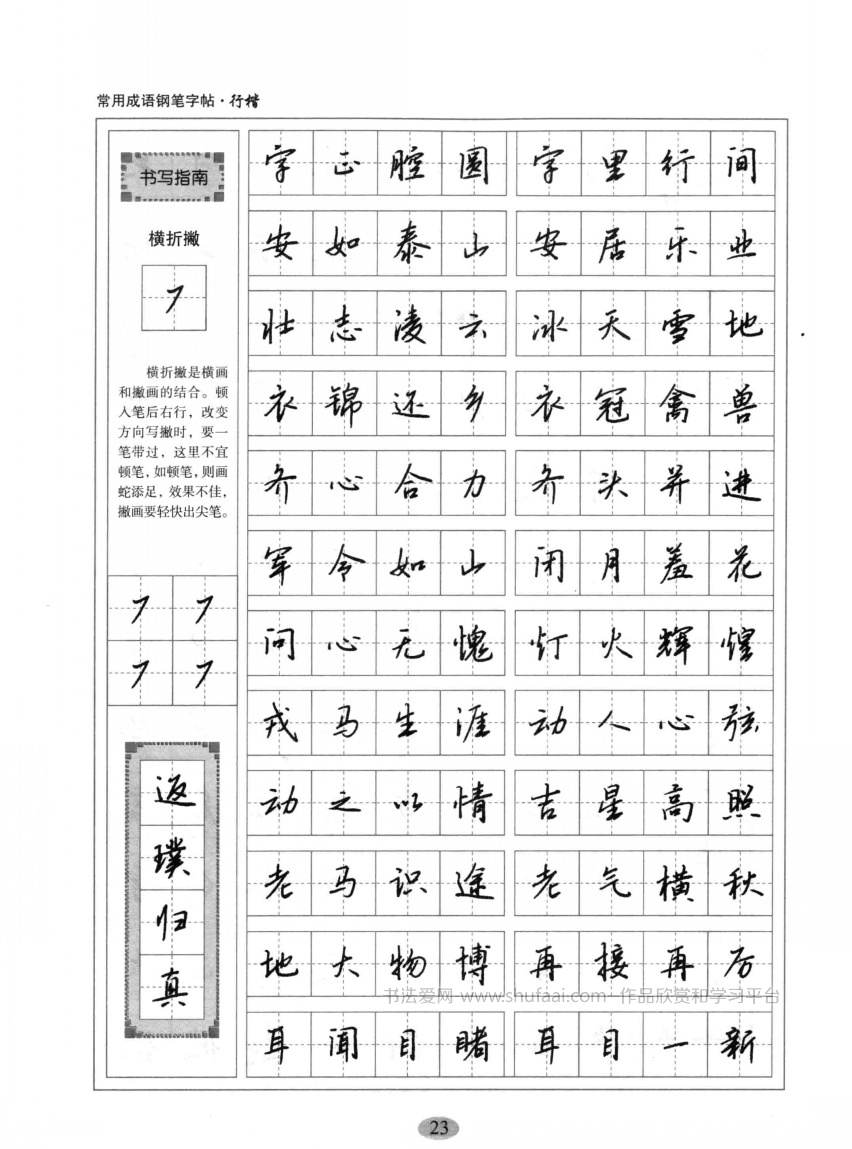 常用成语钢笔字帖·行楷
书写指南
横折撇
㇇
横折撇是横画
和撇画的结合。顿
入笔后右行，改变
方向写撇时，要一
笔带过，这里不宜
顿笔，如顿笔，则画
蛇添足，效果不佳，
撇画要轻快出尖笔。
㇇ ㇇
㇇ ㇇
返
璞
归
真
字正腔圆 字里行间
安如泰山 安居乐业
壮志凌云 冰天雪地
衣锦还乡 衣冠禽兽
齐心合力 齐头并进
军令如山 闭月羞花
问心无愧 灯火辉煌
戎马生涯 动人心弦
动之以情 吉星高照
老马识途 老气横秋
地大物博 再接再厉
耳闻目睹 耳目一新
书法爱网 www.shufaai.com 作品欣赏和学习平台
23